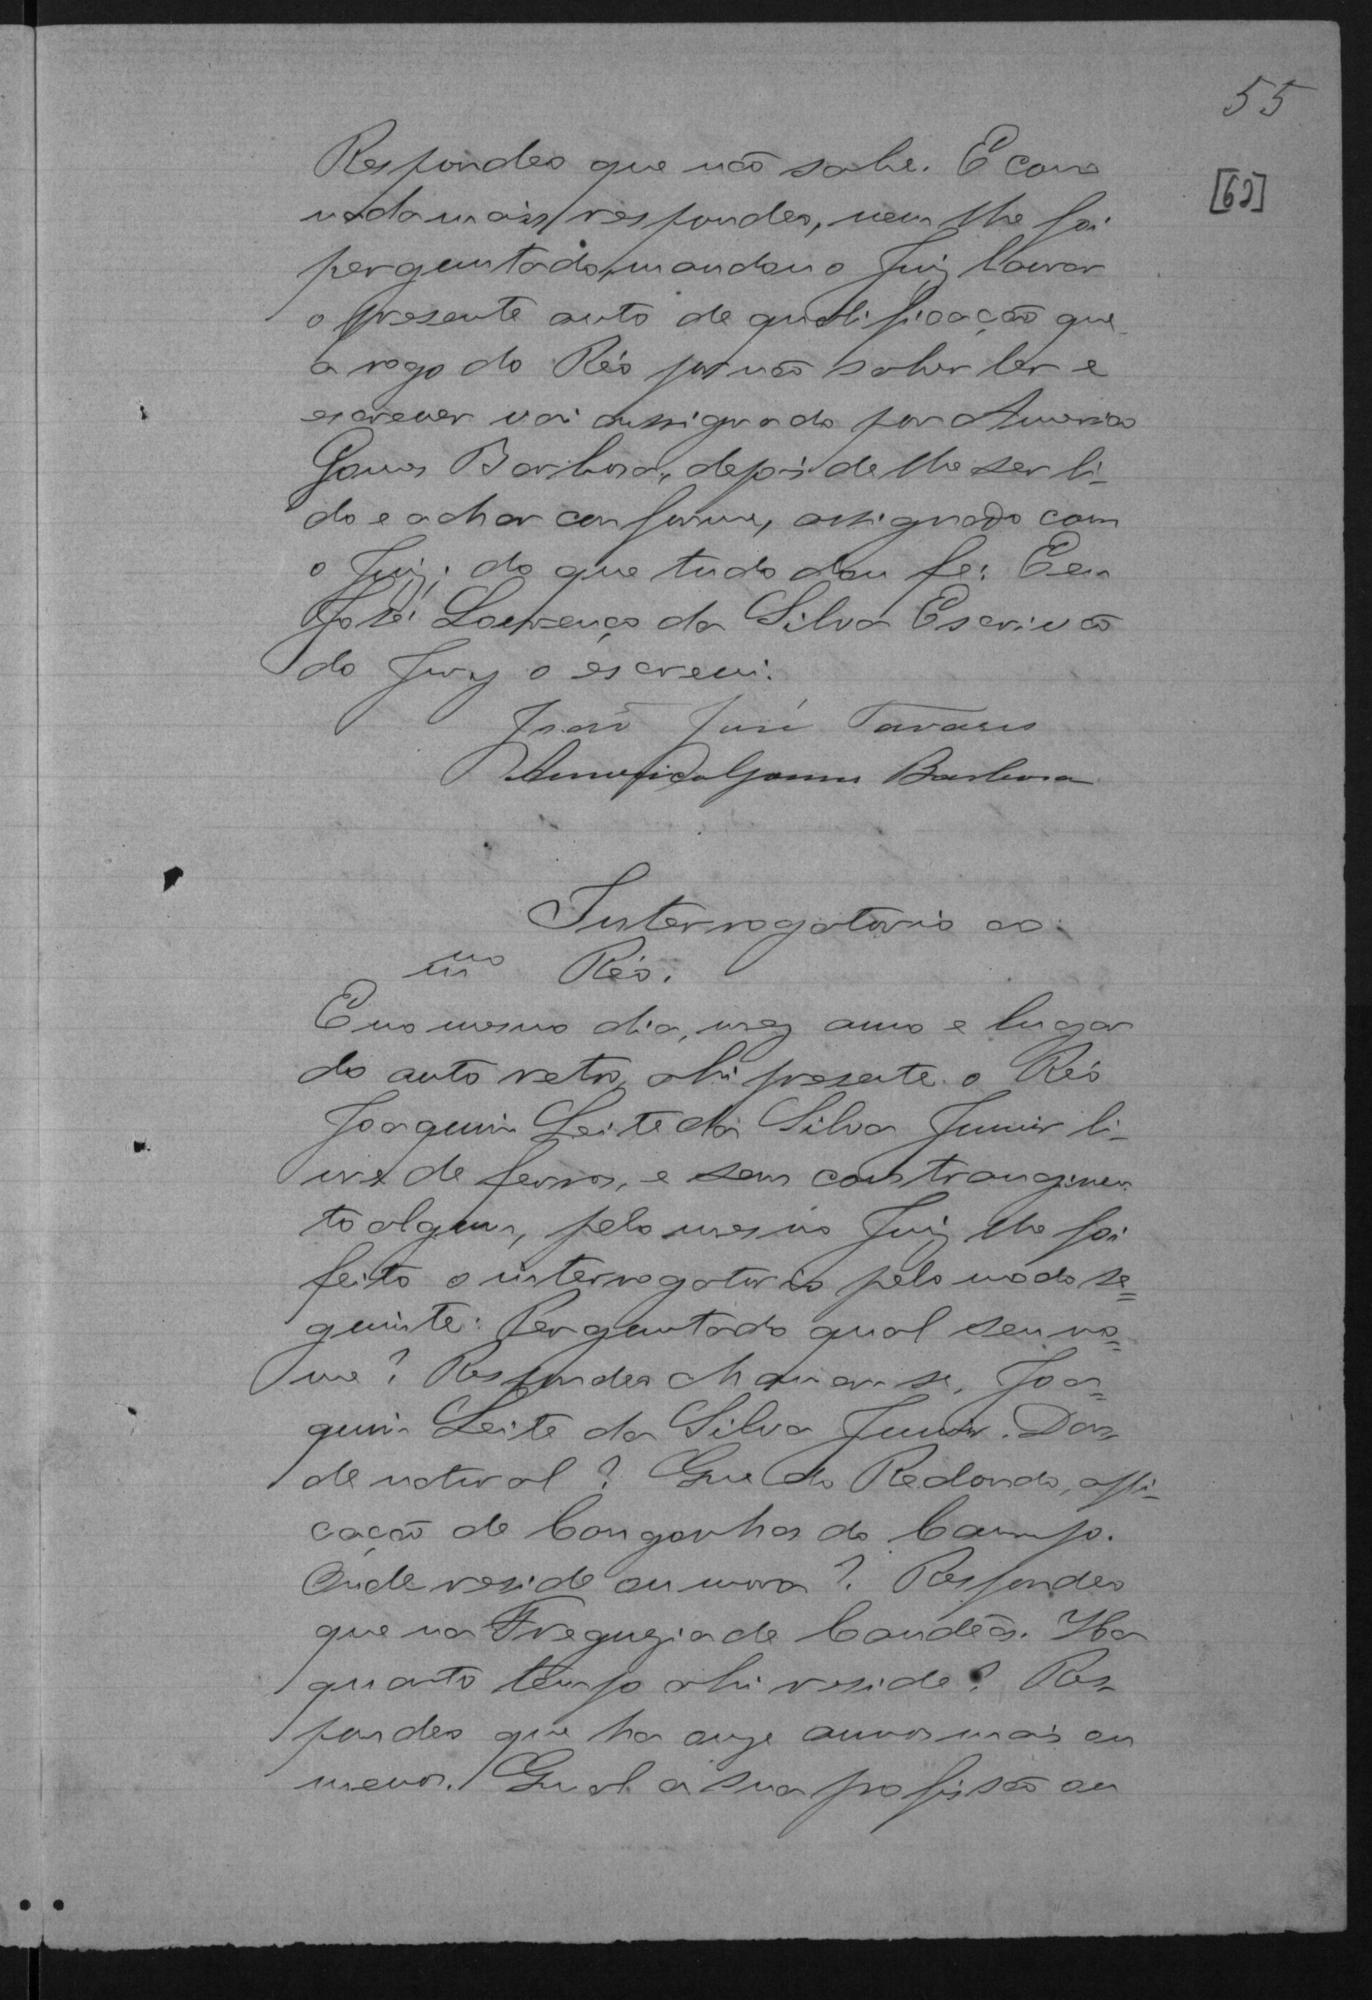 55
[62]
Respondeo que não sabe. E como
nada mais respondeo, nem lhe foi
perguntado, mandou o Juiz lavrar
o presente auto de qualificação que
a rogo do Réo por não saber ler e
escrever vai assignado por Americo
Gomes Barbosa, depois de lhe ser li-
do e achar conforme, assignado com
o Juiz; do que tudo dou fé: Eeu
José Lourenço da Silva Escrivão
do Jury o escrevi.
João José Tavares
Americo Gomes Barbosa
Interrogatorio ao
Réo.
E no mesmo dia, mez anno e lugar
do auto retro, ahi presente o Réo
Joaquim Leite da Silva Junior li-
vre de ferros, e sem constrangimen
to algum, pelo mesmo Juiz lhe foi
feito o interrogatorio pelo modo se=
guinte: Perguntado qual seu no=
me? Respondeo chamar se, Joa=
quim Leite da Silva Junior. Don=
de natural? Que do Redondo, appli-
cação de Congonhas do Campo.
Onde reside ou mora? Respondeo
que na Freguezia de Candêas. Ha
quanto tempo ahi reside? Res-
pondeo que ha onze annos mais ou
menos. Qual a sua profissão ou